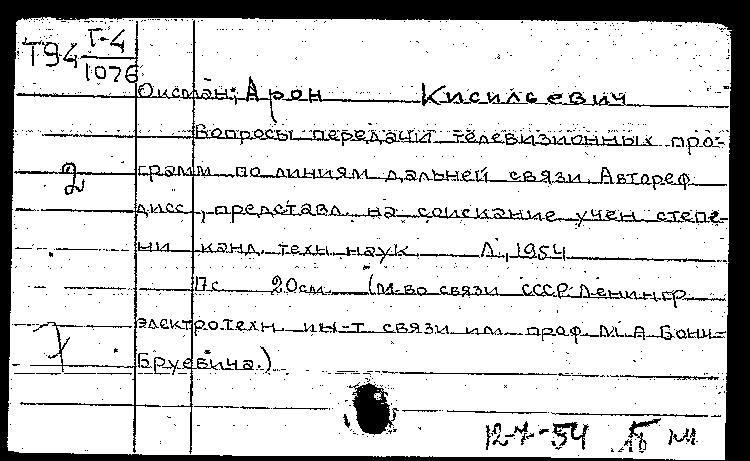 Т94 Т-4
1076
Оксман, Арон Кисильевич
Вопросы передачи телевизионных про-
грамм по линиям дальней связи. Автореф.
дисс., представл. на соискание учен степе-
2
ни канд. техн. наук Л., 1954
17с 20см. (М-во связи СССР. Ленингр.
электротехн. ин-т связи им. проф. М.А. Бонч-
Бруевича.)
12-7-54